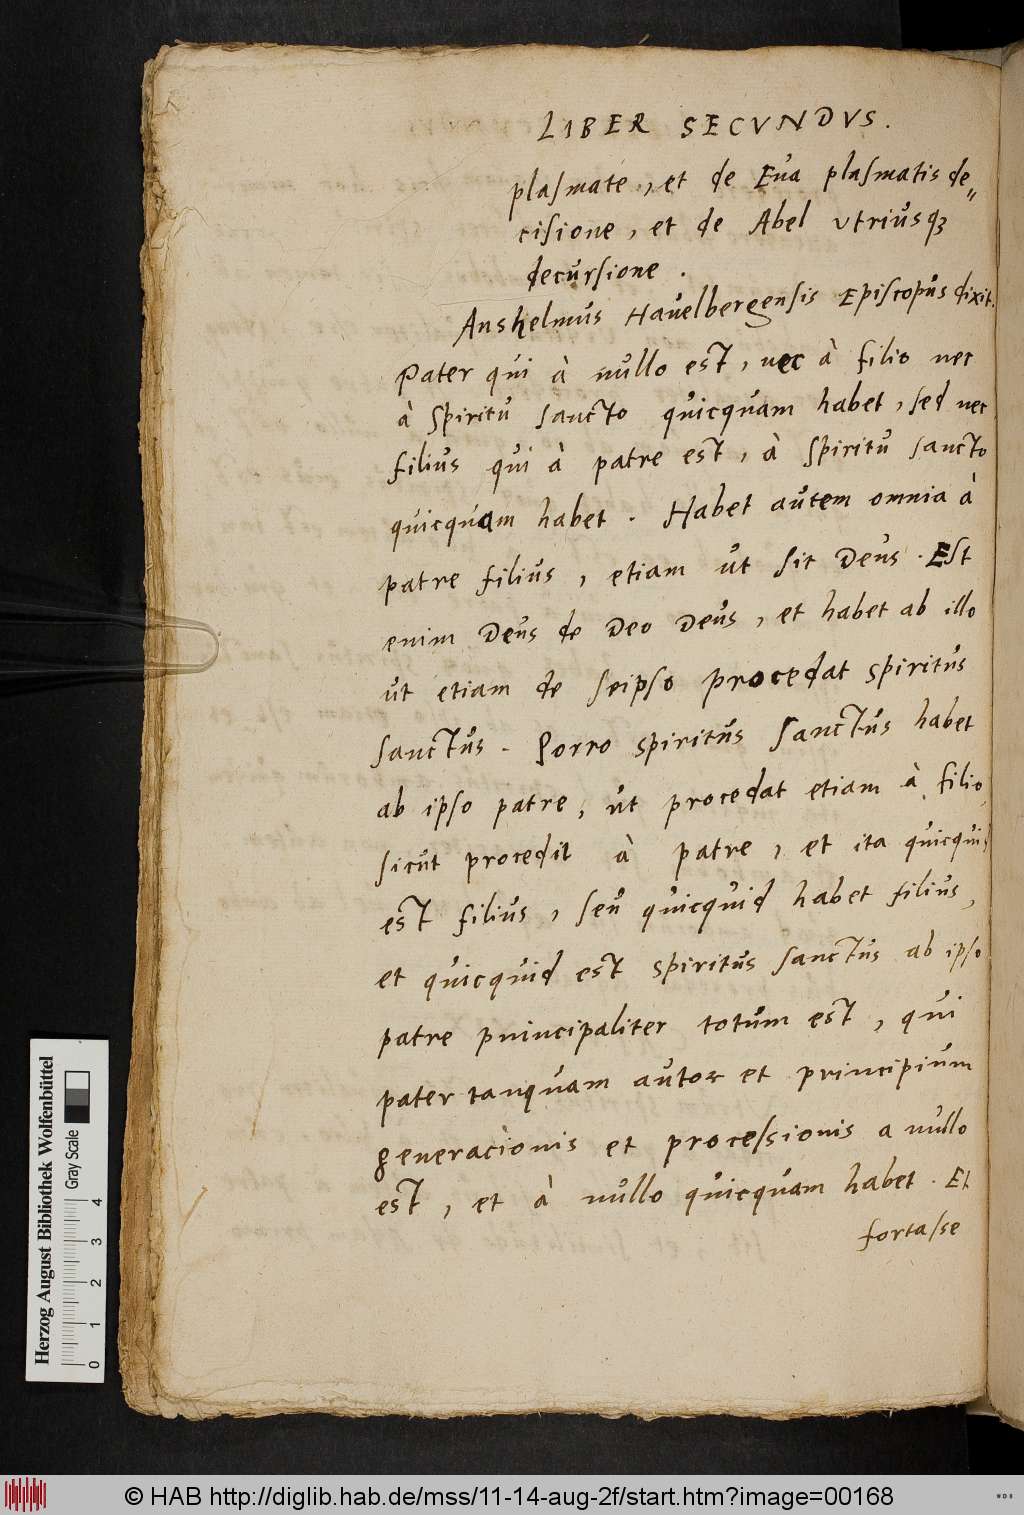 LIBER SECVNDVS.
plasmate, et de Eua plasmatis de„
cisione, et de Abel vtriusqꝫ
decursione.
Anshelmus Hauelbergensis Episcopus dixit.
Pater qui à nullo est, nec à filio nec
à Spiritu sancto quicquam habet, sed nec
filius qui à patre est, à Spiritu sancto
quicquam habet. Habet autem omnia à
patre filius, etiam ut sit Deus. Est
enim Deus de Deo Deus, et habet ab illo
ut etiam de seipso procedat spiritus
sanctus. Porro spiritus sanctus habet
ab ipso patre, ut procedat etiam à filio,
sicut procedit à patre, et ita quicquid
est filius, seu quicquid habet filius,
et quicquid est spiritus sanctus ab ipso
patre principaliter totum est, qui
pater tanquam autor et principium
generacionis et processionis a nullo
est, et à nullo quicquam habet. Et
fortasse
Herzog August Bibliothek Wolfenbüttel
Gray Scale
0 1 2 3 4
© HAB http://diglib.hab.de/mss/11-14-aug-2f/start.htm?image=00168